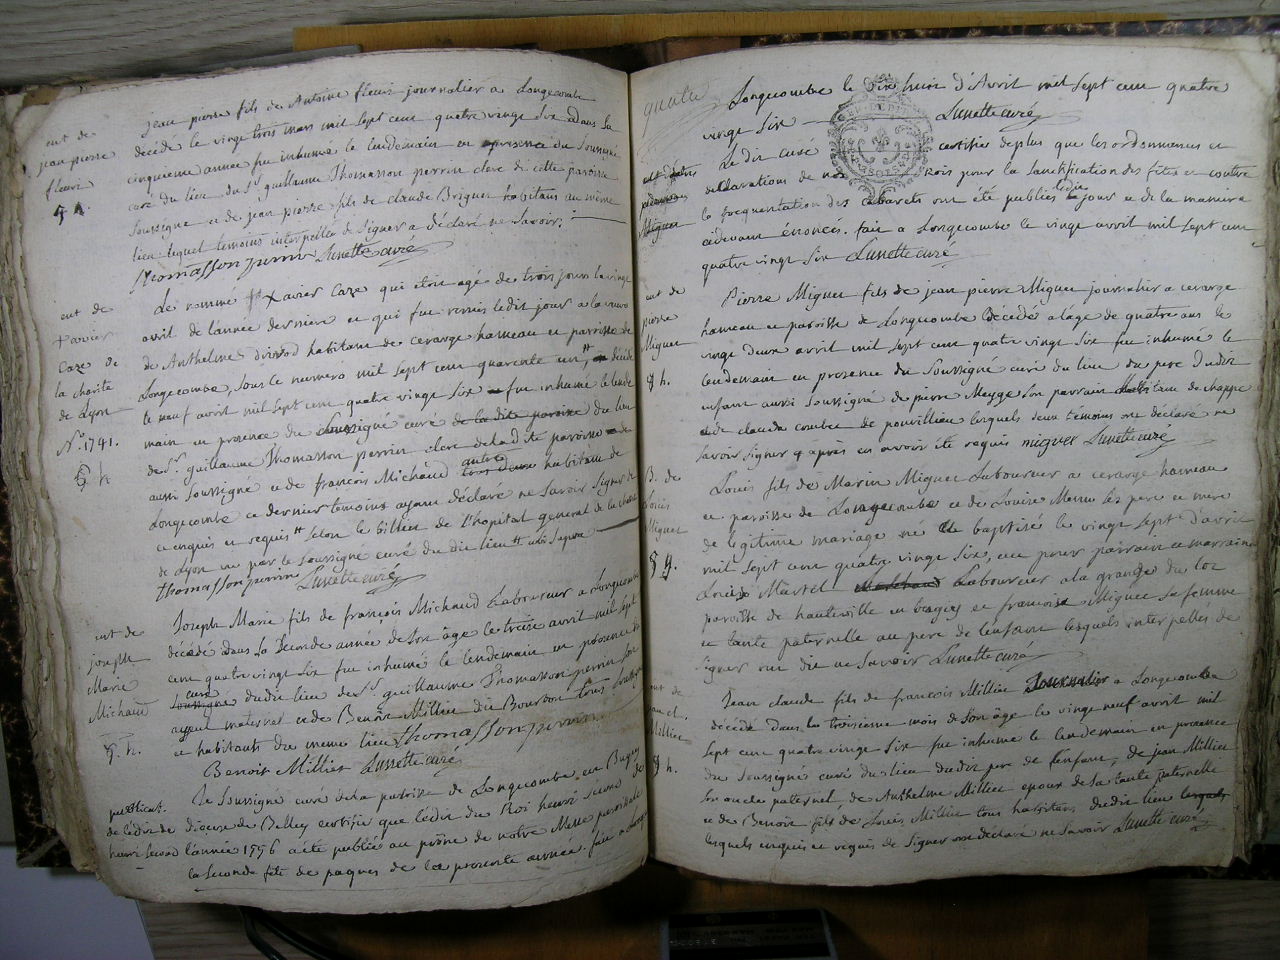 ent de
jean pierre
fleuri
jean pierre fils de Antoine fleuri journalier a Longecombe
décédé le vingt trois mars mil sept cent quatre vingt six dans la
cinquieme année fut inhumé le lendemain en presence du Soussigné
curé du lieu du Sr guillaume Thomasson perrin clerc de cette paroisse
Soussigné et de jean pierre fils de claude Brigue habitans au même
lieu lequel témoins interpellé de Signer a déclaré ne Savoir.
Thomasson perrin Lunette curé
ent de
xavier
Caze de
la charité
de Lyon
No. 1741.
Le nommé xavier Caze qui etoit agé de trois jours le vingt
avril de l'année derniere et qui fut remis ledit jour a la veuve
de Anthelme habitant de cerarge hameau et paroisse de
Longecombe, sous le numero mil sept cent quarente un, décédé
le neuf avril mil sept cent quatre vingt six fut inhumé le lende
main en presence du Soussigné curé de la dite paroisse du lieu
de Sr guillaume Thomasson perrin clerc de la dite paroisse
aussi Soussigné et de françois Michaud autre habitant de
Longecombe ce dernier temoins ayant déclaré ne Savoir Signer de
ce enquis et requis selon le billet de l'hopital general de la charité
de Lyon vu par le Soussigné curé du dit lieu
Thomasson perrin Lunette curé
ent de
joseph
Marie
Michaud
Joseph Marie fils de françois Michaud Laboureur a Longecombe
décédé dans la Seconde année de Son âge le treize avril mil sept
cent quatre vingt six fut inhumé le lendemain en présence du
Soussigné curé dudit lieu de Sr guillaume Thomasson perrin son
ayeul maternel et de Benoit Milliet du Bourbon tous Soussignés
et habitants du même lieu Thomasson perrin
Benoit Milliet Lunette curé
publicat.
de l'edit de
henri Second
Le Soussigné curé de la paroisse de Longecombe, en Bugey
diocese de Belley certifie que l'edit du Roi henri Second de
l'année 1556 a été publié au prône de notre Messe paroissiale
la seconde fête de paques de la presente année. fait a
Longecombe le dix huit d'Avril mil Sept cent quatre
vingt six Lunette curé
Le dit curé certifie de plus que les ordonnances et
déclarations de nos Rois pour la Sanctification des fêtes et contre
la frequentation des cabarets ont été publiés ledit jour et de la maniere
cidevant énoncés. fait a Longecombe le vingt avril mil sept cent
quatre vingt six Lunette curé
ent de
pierre
Miguet
Pierre Miguet fils de jean pierre Miguet journalier a cerarge
hameau et paroisse de Longecombe Décédé a l'âge de quatre ans le
vingt deux avril mil sept cent quatre vingt six fut inhumé le
lendemain en presence du Soussigné curé du lieu du pere Dudit
enfant aussi Soussigné de pierre Meyge son parrain
de claude combe de ponvillieu lesquels deux témoins ont déclaré ne
Savoir Signer après en avoir été requis miguet Lunette curé
B. de
Louis
Miguet
Louis fils de Marin Miguet Laboureur a cerarge hameau
et paroisse de Longecombe et de Louise Menu ses pere et mere
de legitime mariage né et baptisé le vingt sept d'avril
mil sept cent quatre vingt six, a eu pour parrain et marraine
Louis Martel Laboureur a la grange du loz
paroisse de hauteville en bugey et françoise Miguet sa femme
et tante paternelle au pere de l'enfant lesquels interpellés de
Signer ont dit ne Savoir Lunette curé
ent de
jean cl.
Milliet
Jean claude fils de françois Milliet Journalier a Longecombe
décédé dans la troisieme mois de Son âge le vingt neuf avril mil
sept cent quatre vingt six fut inhumé le lendemain en presence
du Soussigné curé du lieu du dit pere de l'enfant, de jean Milliet
son oncle paternel, de Anthelme Milliet epoux de sa tante paternelle
et de Benoit fils de Louis Milliet tous habitans dudit lieu
lesquels enquis et requis de Signer ont déclaré ne Savoir Lunette curé